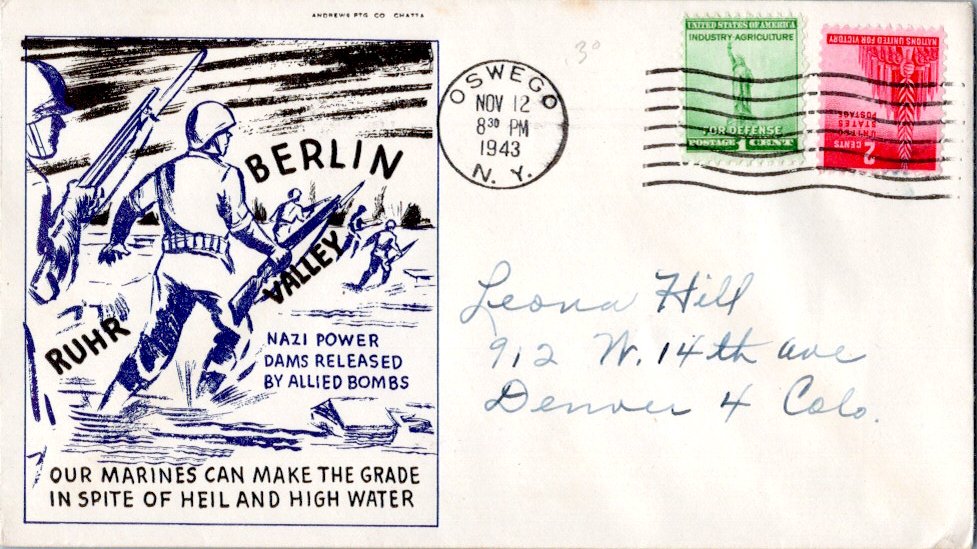 ANDREWS PTG CO CHATTA
BERLIN
RUHR
VALLEY
NAZI POWER
DAMS RELEASED
BY ALLIED BOMBS
OUR MARINES CAN MAKE THE GRADE
IN SPITE OF HEIL AND HIGH WATER
OSWEGO
NOV 12
8 30 PM
1943
N. Y.
3⁰
UNITED STATES OF AMERICA
INDUSTRY-AGRICULTURE
FOR DEFENSE
POSTAGE 1 CENT
NATIONS UNITED FOR VICTORY
UNITED
STATES
POSTAGE
2 CENTS
Leona Hill
912 W. 14th ave
Denver 4 Colo.